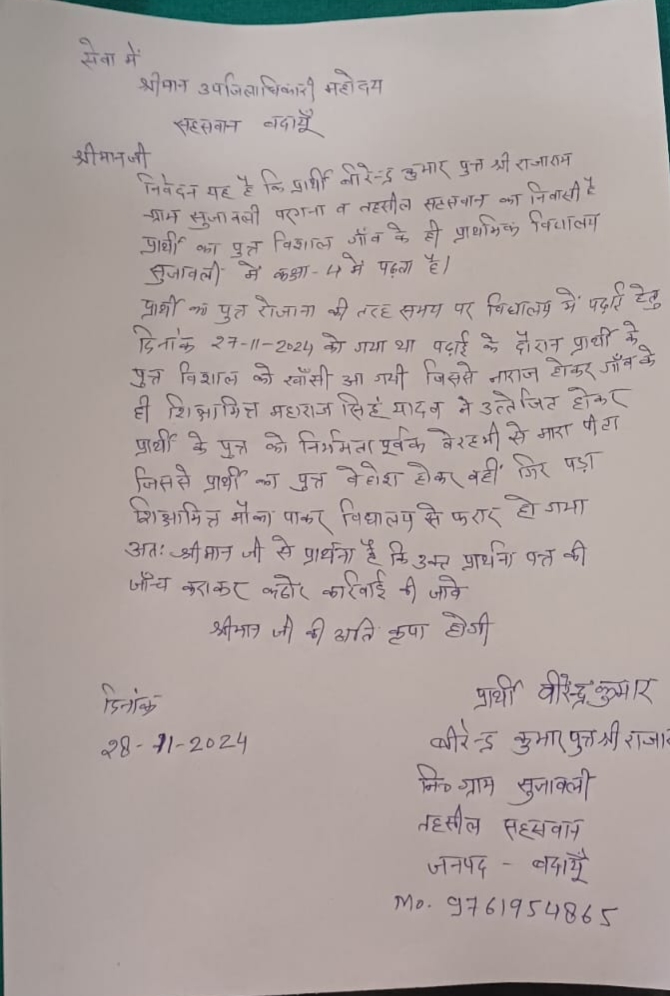 सेवा में
श्रीमान उपजिलाधिकारी महोदय
सहसवान बदायूँ
श्रीमानजी
निवेदन यह है कि प्रार्थी वीरेन्द्र कुमार पुत्र श्री राजाराम
ग्राम सुजावली परगना व तहसील सहसवान का निवासी है
प्रार्थी का पुत्र विशाल गाँव के ही प्राथमिक विद्यालय
सुजावली में कक्षा-4 में पढ़ता है।
प्रार्थी का पुत्र रोजाना की तरह समय पर विद्यालय में पढ़ाई हेतु
दिनांक 27-11-2024 को गया था पढाई के दौरान प्रार्थी के
पुत्र विशाल को खाँसी आ गयी जिससे नाराज होकर गाँव के
ही शिक्षामित्र महाराज सिंह यादव ने उत्तेजित होकर
प्रार्थी के पुत्र को निर्ममता पूर्वक बेरहमी से मारा पीटा
जिससे प्रार्थी का पुत्र बेहोश होकर वहीं गिर पड़ा
शिक्षामित्र मौका पाकर विद्यालय से फरार हो गया
अतः श्रीमान जी से प्रार्थना है कि उक्त प्रार्थना पत्र की
जाँच कराकर कठोर कार्रवाई की जावे
श्रीमान जी की अति कृपा होगी
प्रार्थी वीरेन्द्र कुमार
दिनांक
28-11-2024
वीरेन्द्र कुमार पुत्र श्री राजा
नि० ग्राम सुजावली
तहसील सहसवान
जनपद - बदायूँ
Mo. 9761954865